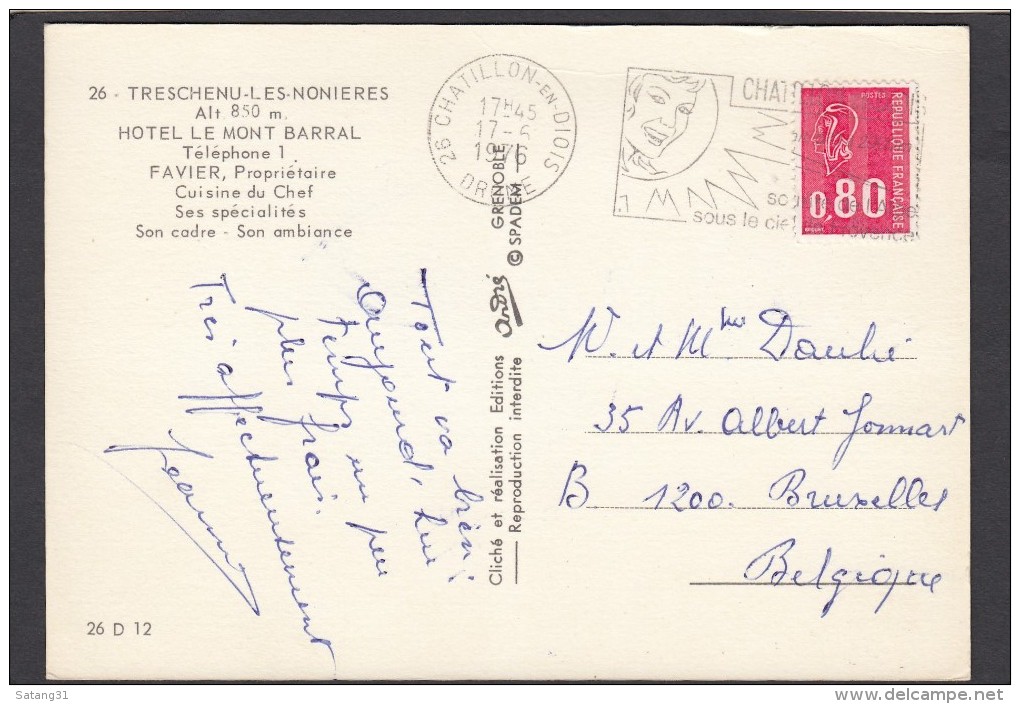 26 - TRESCHENU-LES-NONIERES
Alt. 850 m.
HOTEL LE MONT BARRAL
Téléphone 1
FAVIER, Propriétaire
Cuisine du Chef
Ses spécialités
Son cadre - Son ambiance
26 CHATILLON-EN-DIOIS
17H45
17-6
1976
DROME
CHAT
sous le cie
POSTES
REPUBLIQUE FRANÇAISE
0,80
Tout va bien;
Aujourd'hui
temps un peu
plus frais.
Très affectueusement
Cliché et réalisation Editions André GRENOBLE
Reproduction interdite © SPADEM
M. et Mme Daubé
35 Av. Albert Jonnart
B 1200. Bruxelles
Belgique
26 D 12
Satang31
www.delcampe.net